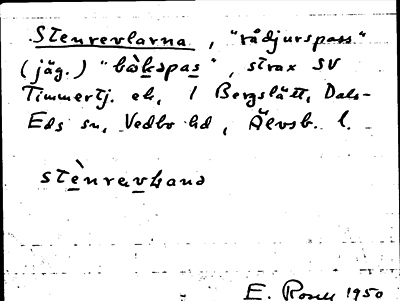 Stenrevlarna, "rådjurspass"
(jäg.) "bàkspas", strax SV
Timmertj. ek, 1 Bergslätt, Dals-
Eds sn, Vedbo hd, Älvsb. l.
stènrevlana
E. Rosell 1950